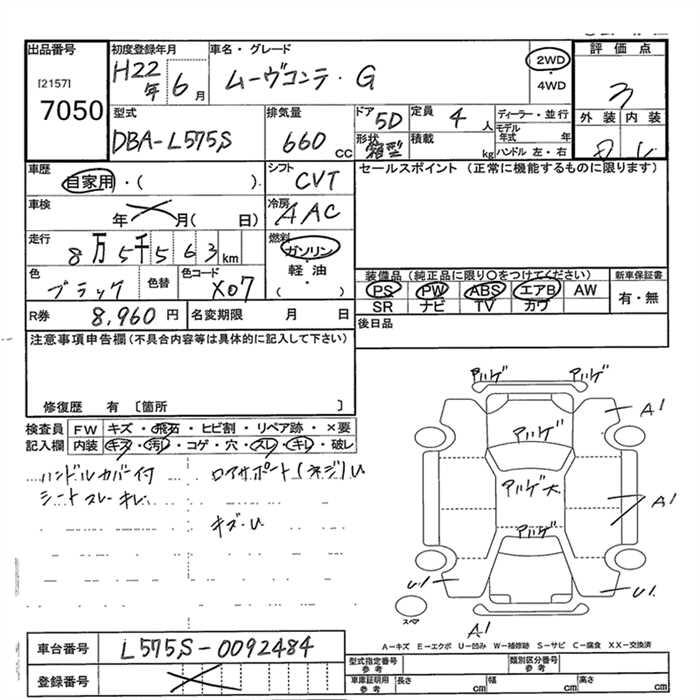 出品番号
[2157]
7050
初度登録年月
H22年 6月
車名・グレード
ムーヴコンテ・G
2WD
・
4WD
評価点
3
型式
DBA-L575S
排気量
660 cc
ドア
5D
形状
箱型
定員 4 人
積載 kg
ディーラー・並行
モデル年式 年
ハンドル 左・右
外装 内装
車歴
自家用・( )
シフト
CVT
セールスポイント (正常に機能するものに限ります)
車検
年 月( 日)
冷房
AAC
走行
8万5千563km
燃料
ガソリン
・
軽油
( )
色
ブラック
色替
色コード
X07
装備品 (純正品に限り〇をつけてください)
PS PW ABS エアB AW
SR ナビ TV カワ
新車保証書
有・無
R券 8,960 円
名変期限 月 日
後日品
注意事項申告欄(不具合内容等は具体的に記入して下さい)
修復歴 有 〔箇所 〕
検査員記入欄
FW キズ・飛石・ヒビ割・リペア跡・×要
内装 キズ・汚れ・コゲ・穴・スレ・キレ・破レ
ハンドルカバー付
シートスレ キレ
ロアサポート(ネジ)U
キズ・U
アハゲ アハゲ
A1
アハゲ
アハゲ大
A1
アハゲ
U1
U1
スペア
A1
A-キズ E-エクボ U-凹み W-補修跡 S-サビ C-腐食 XX-交換済
車台番号 L575S-0092484
登録番号
型式指定番号 参考
類別区分番号 参考
車庫証明用 参考
長さ cm 幅 cm 高さ cm